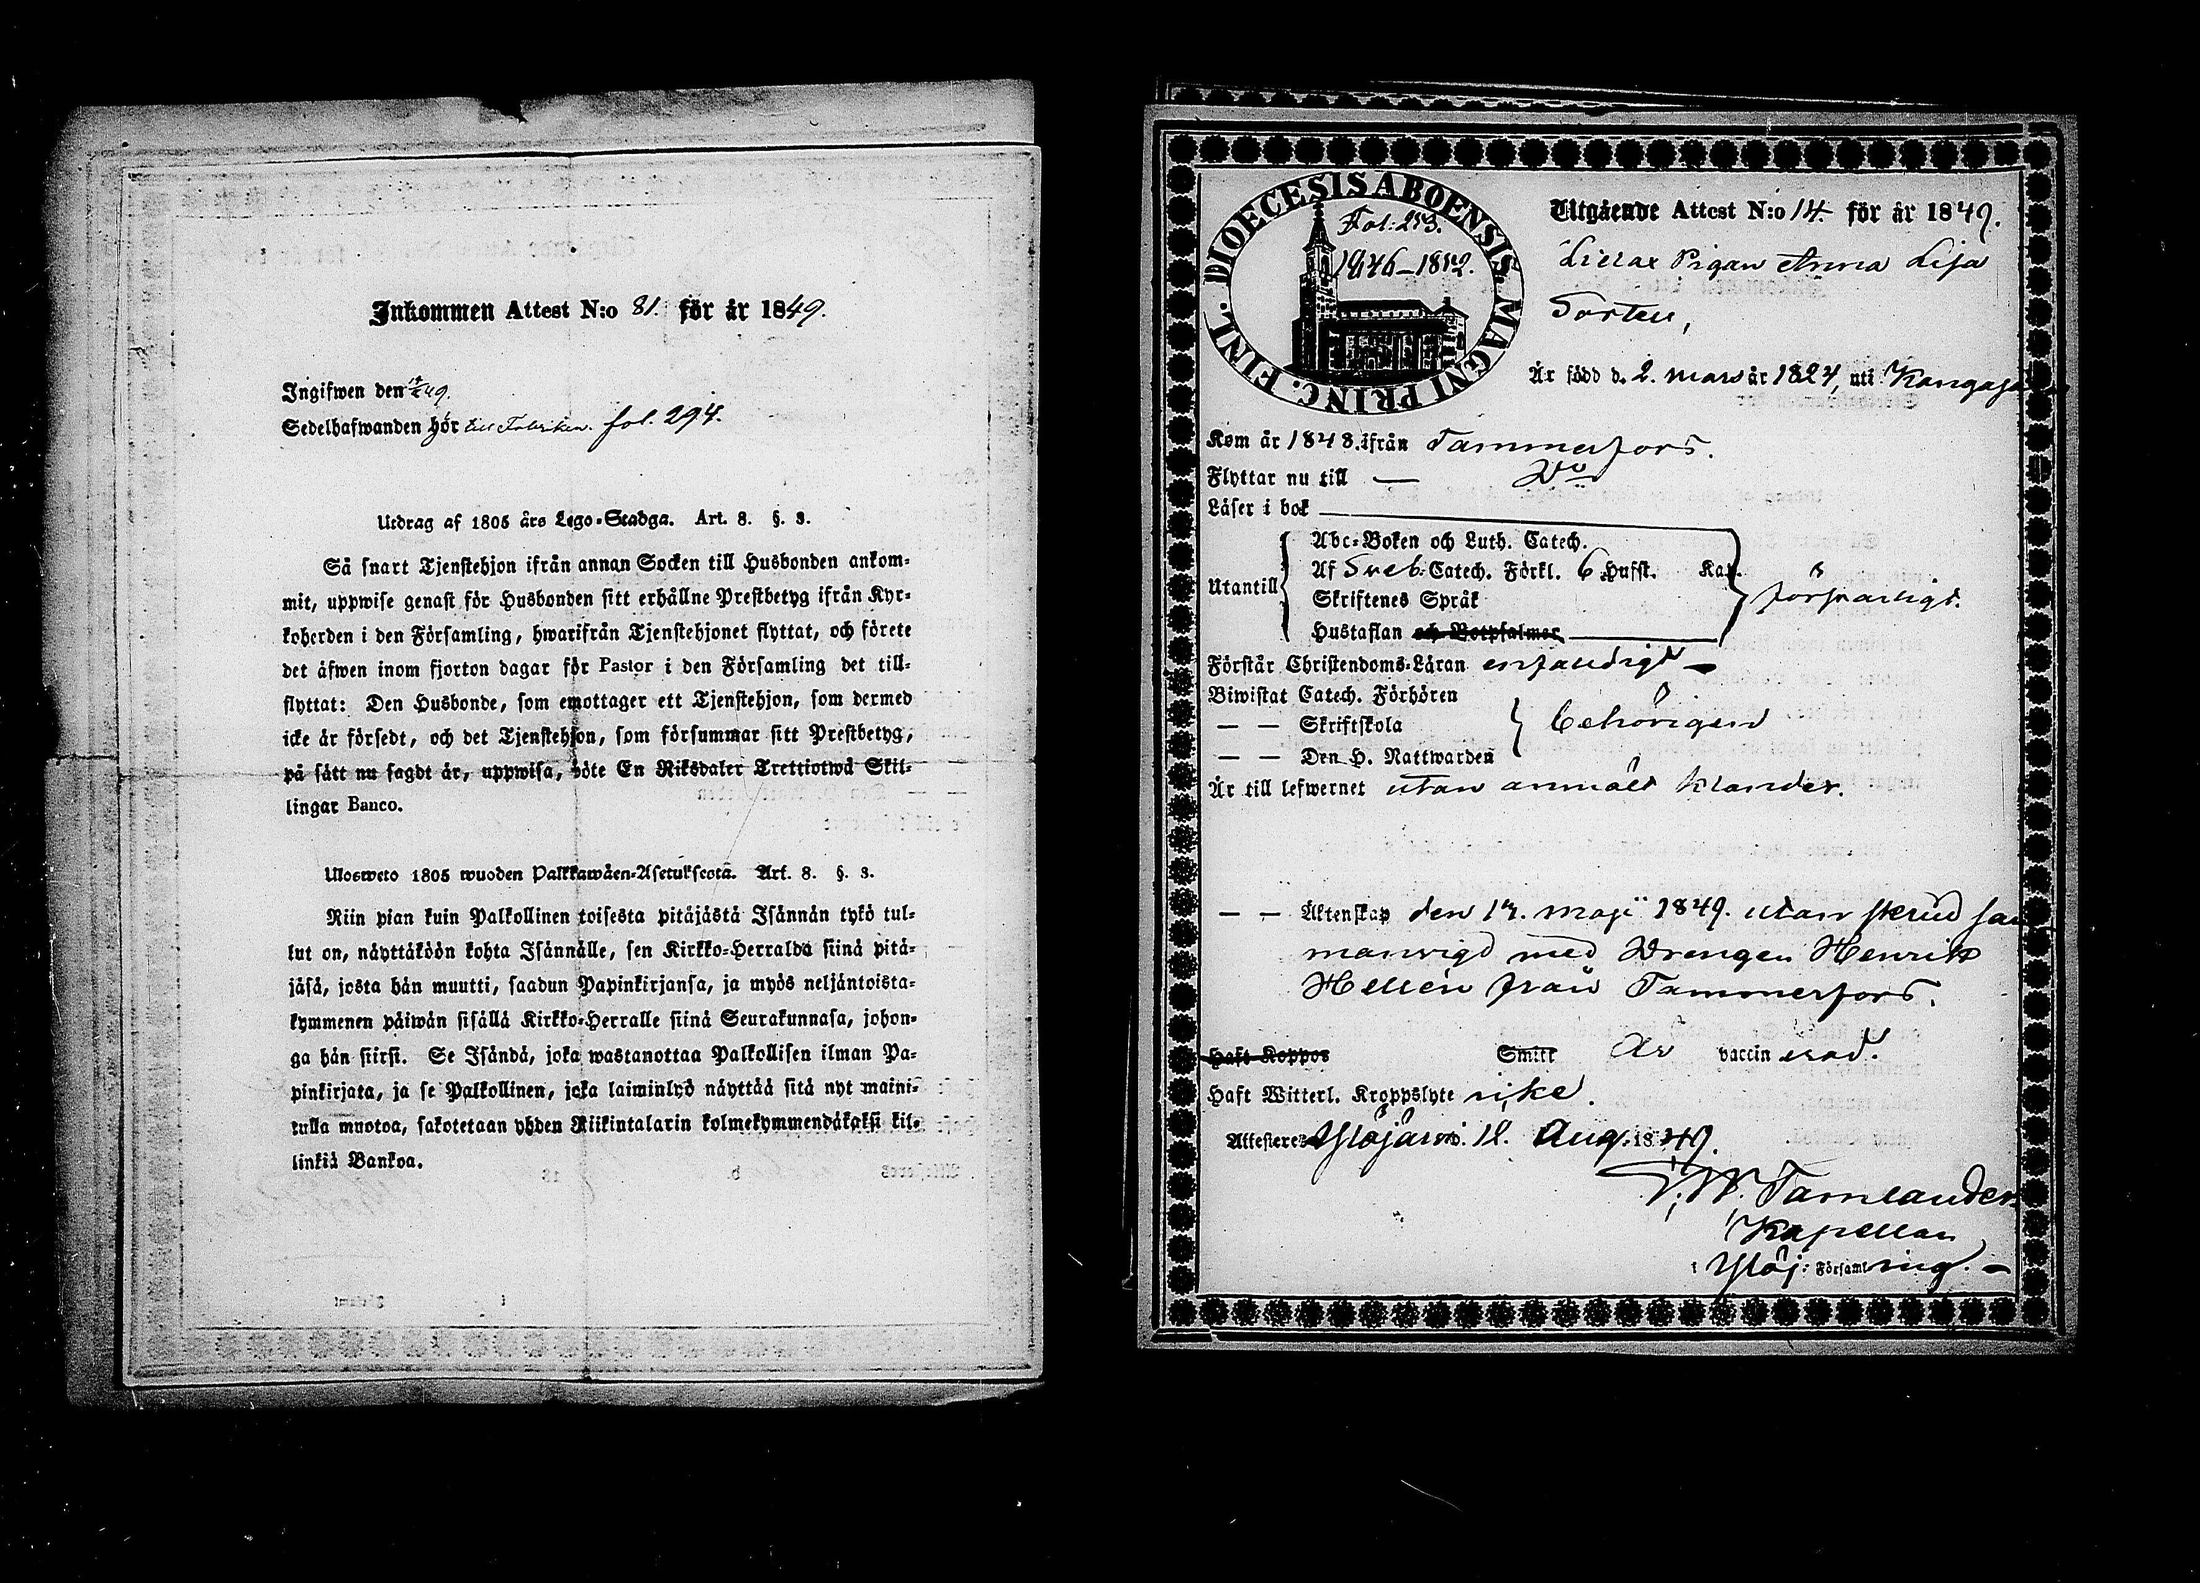 Inkommen Attest N:o 81. för år 1849.
Ingifwen den
Sedelhafwanden hör till Fabriken. fol. 294.
Utdrag af 1805 års Lego-Stadga. Art. 8. §. 3.
Så snart Tjenstehjon ifrån annan Socken till Husbonden ankom-
mit, uppwise genast för Husbonden sitt erhållne Prestbetyg ifrån Kyr-
koherden i den Församling, hwarifrån Tjenstehjonet flyttat, och förete
det äfwen inom fjorton dagar för Pastor i den Församling det till-
flyttat: Den Husbonde, som emottager ett Tjenstehjon, som dermed
icke är försedt, och det Tjenstehjon, som försummar sitt Prestbetyg,
på sätt nu sagdt är, uppwisa, böte En Riksdaler Trettiotwå Skil-
lingar Banco.
Ulosweto 1805 wuoden Palkkawäen-Asetuksesta. Art. 8. §. 3.
Niin pian kuin Palkollinen toisesta pitäjästä Isännän tykö tul-
lut on, näyttäköön kohta Isännälle, sen Kirkko-Herralda siinä pitä-
jäsä, josta hän muutti, saadun Papinkirjansa, ja myös neljäntoista-
kymmenen päiwän sisällä Kirkko-Herralle siinä Seurakunnasa, johon-
ga hän siirsi. Se Isändä, joka wastanottaa Palkollisen ilman Pa-
pinkirjata, ja se Palkollinen, joka laiminlyö näyttää sitä nyt maini-
tulla muotoa, sakotetaan yhden Riikintalarin kolmekymmendäkaksi kil-
linkiä Bankoa.
FINL. DIOECESIS ABOENSIS MAGNI PRINC.
Fol: 253.
1846-1852.
Utgående Attest N:o 14. för år 1849.
Pigan Anna Lisa
Är född d. 2. mars år 1824, uti Kangasa
Kom år 1848. ifrån Tammerfors.
Flyttar nu till — Do
Läser i bok
Abc-Boken och Luth. Catech.
Utantill Af Sveb. Catech. Förkl. 6 Hufst. Kap. försvarligt.
Skriftenes Språk
Hustaflan och Botpsalmer
Förstår Christendoms-Läran enfaldigt —
Biwistat Catech. Förhören
— — Skriftskola behörigen
— — Den H. Nattwarden
Är till lefwernet utan anmält klander.
— — Äktenskap den 17. maji 1849. utan skrud sam
manvigd med Drengen Henrik
Hellén från Tammerfors.
Haft Koppor Smitt Är vaccinerad.
Haft Witterl. Kroppslyte icke.
Attesteres Ylöjärvi d. 12. Aug. 1849.
Tamlander
Kapellan
i Ylöj: Församling. —